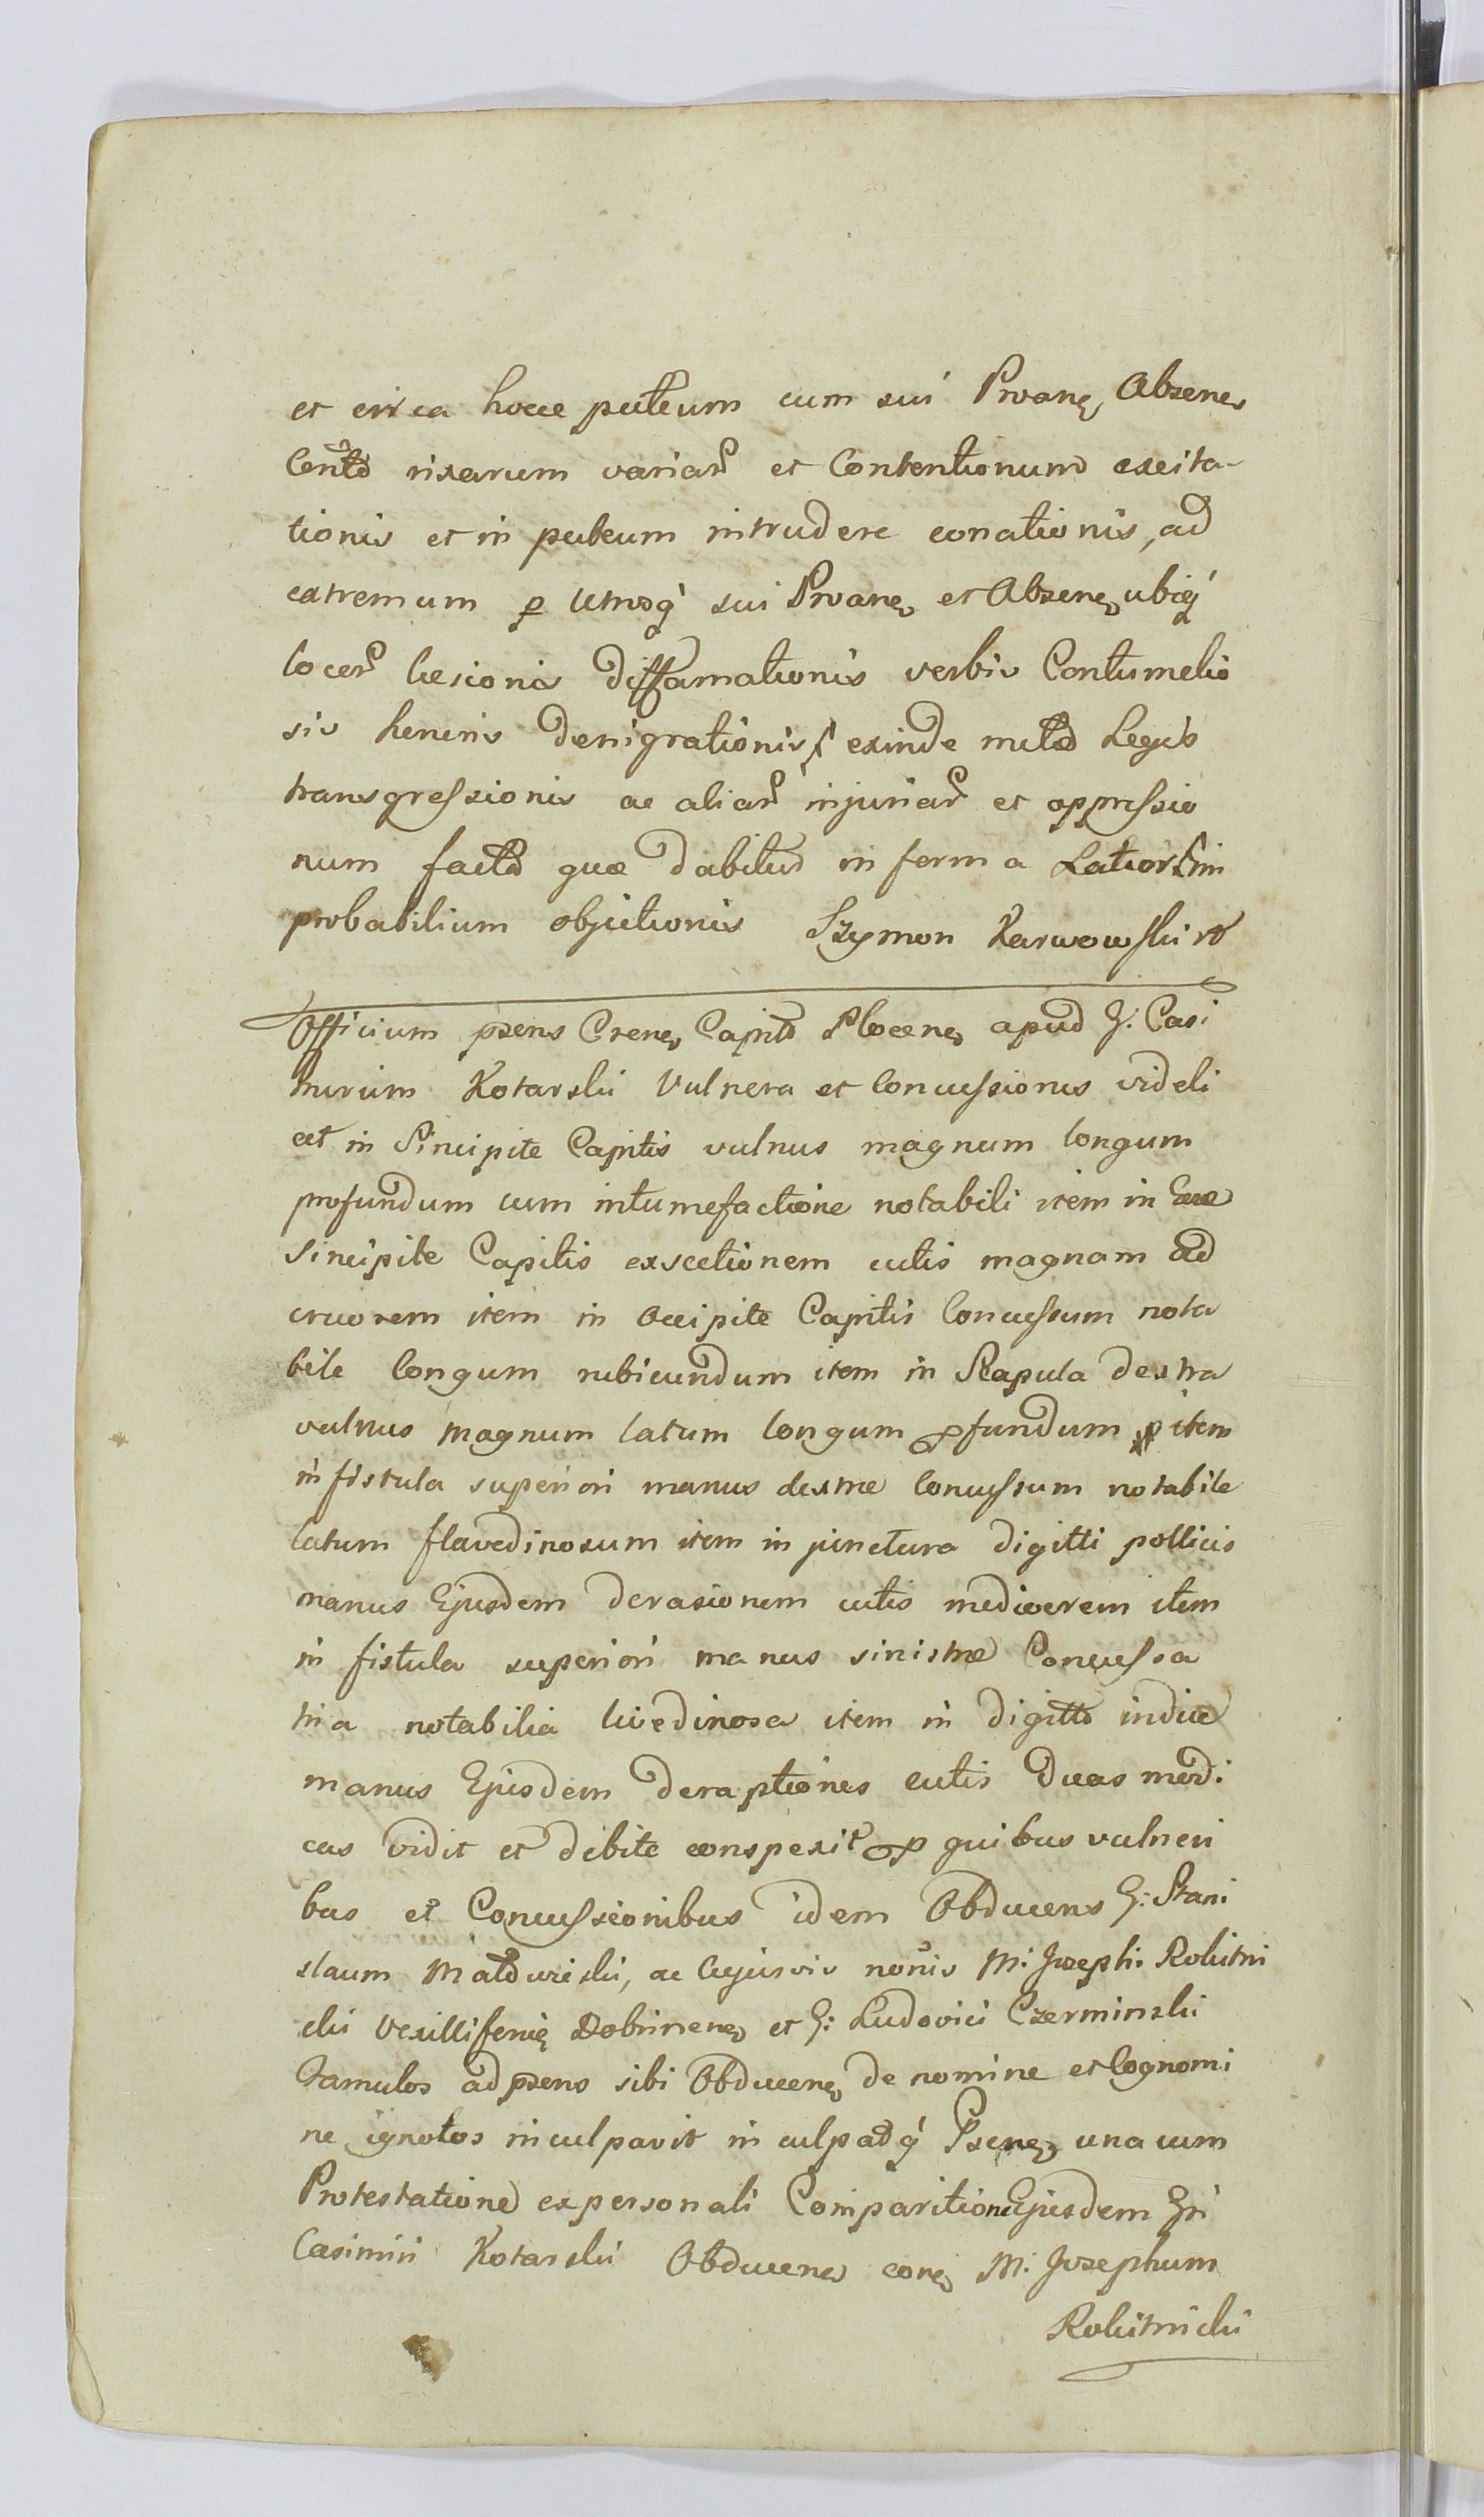 et circa hocce puteum cum sui Proane, Absene,
Centd rixarum variar et Contentionum excita-
tionis et in puteum intrudere conationis, ad
extremum p Utrosq sui Proane, et Absene, ubiq
locer læsionis diffamationis verbis Contumelio
sis heneris denigrationis exinde Legis
transgressionis ac aliar injuriar et oppressio
num factd quæ dabitur in forma Latiori
probabilium objectionis Szymon Karwowski
Officium psens Crene, Captd Plocene, apud G. Casi
mirum Kotarski Vulnera et Concussiones videli
cet in Sincipite Capitis vulnus magnum longum
profundum cum intumefactione notabili item in
Sincipite Capitis exsectionem cutis magnam ad
cruorem item in Occipite Capitis Concussum nota
bile longum rubicundum item in Scapula dextra
vulnus magnum latum longum pfundum item
in fistula superiori manus dextræ Concussum notabile
latum flavedinosum item in junctura digitti pollicis
manus Ejusdem derasionem cutis mediocrem item
in fistula superiori manus sinistræ Concussa
tria notabilia livedinosa item in digitto indice
manus Ejusdem deraptiones cutis duas medi
cas vidit et debite conspexit p quibus vulneri
bus et Concussionibus idem Obducens G: Stani
slaum ac Cujusvis nonis M: Joseph: Rokitni
cki Vexilliferie, Dobrinene, et G: Ludovici Czerminski
Famulos ad psens sibi Obducene, de nomine et Cognomi
ne ignotos inculpavit inculpadq Psene, una cum
Protestatione ex personali Comparitione Ejusdem Gri
Casimiri Kotarski Obducene, cone, M: Josephum
Rokitnicki